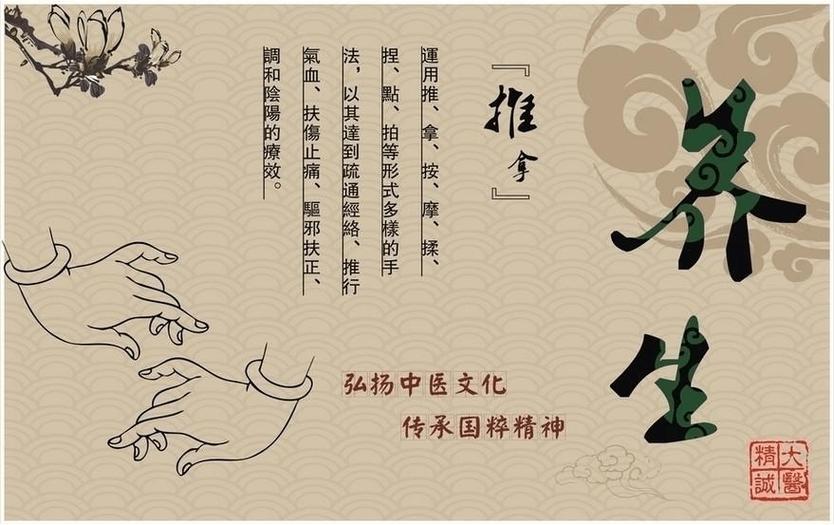 养生
『推拿』
運用推、拿、按、摩、揉、
捏、點、拍等形式多樣的手
法，以其達到疏通經絡、推行
氣血、扶傷止痛、驅邪扶正、
調和陰陽的療效。
弘扬中医文化
传承国粹精神
大醫
精誠